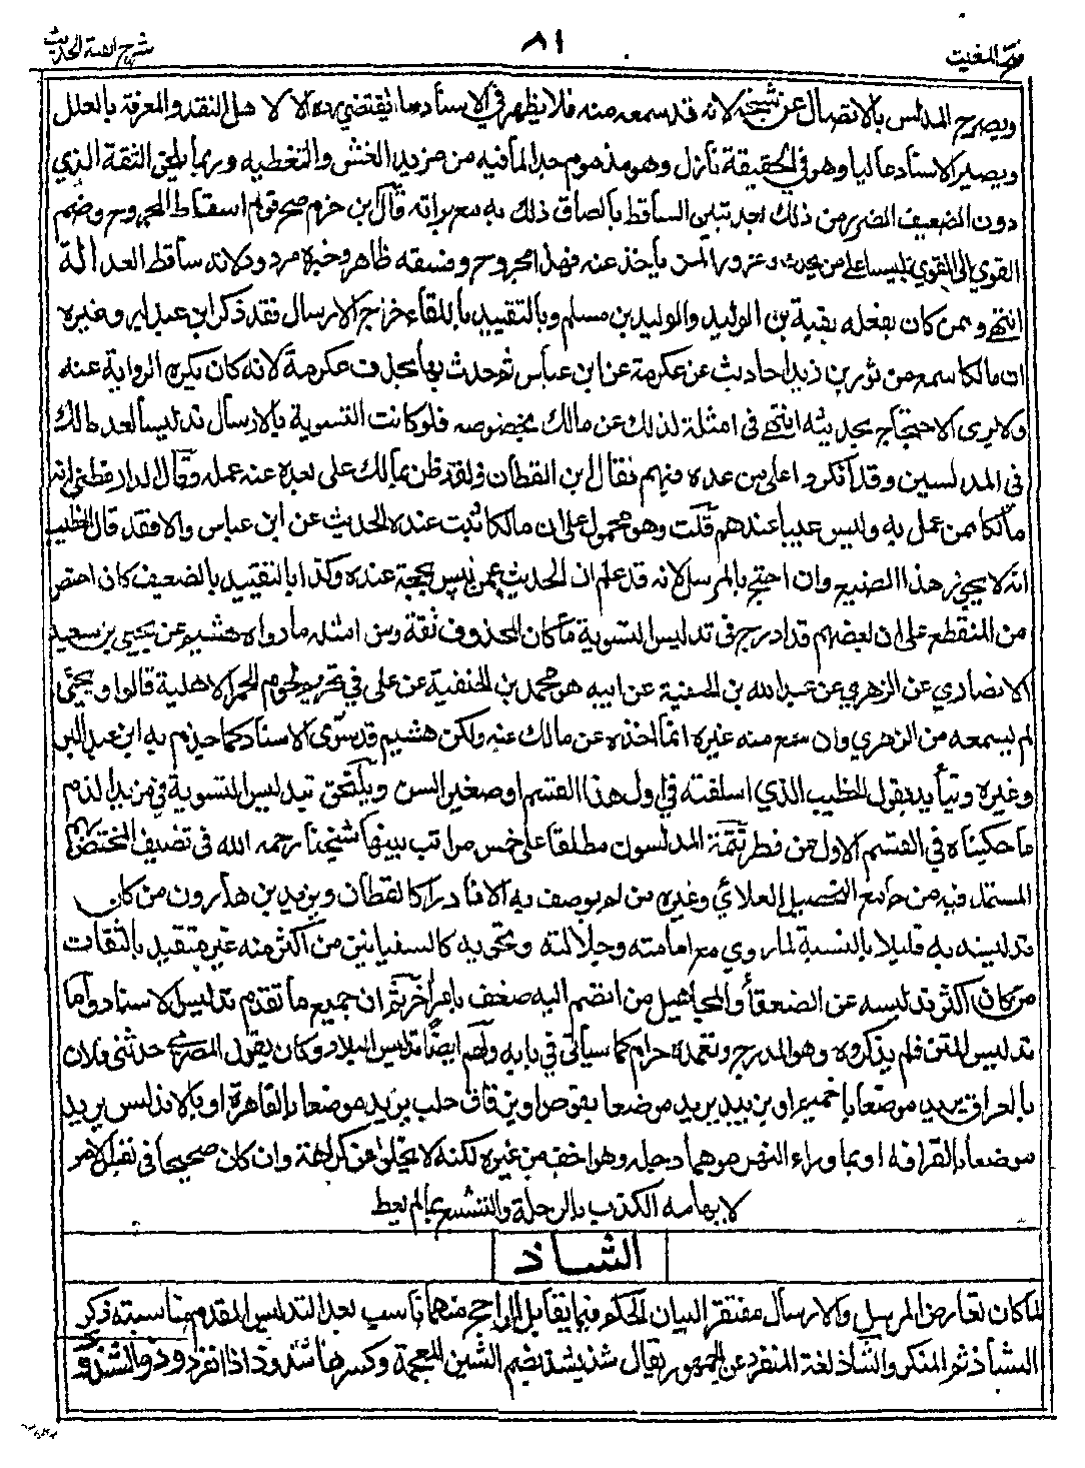 فتح المغيث
٨١
شرح الفية الحديث
ويصرح المدلس بالاتصال عن شيخه لانه قد سمعه منه فلا يظهر في الاسناد ما يقتضي رده الا لاهل النقد والمعرفة بالعلل
ويصير الاسناد عاليا وهو في الحقيقة نازل وهو مذموم جدا لما فيه من مزيد الغش والتغطيه وربما يلحق الثقة الذي
دون الضعيف الضرر من ذلك بعد تبين الساقط بالصاق ذلك به مع براته قال ابن حزم صح قوم اسقاط المجروح وضم
القوي الى القوي تلبيسا على من يحدث وغرورا لمن ياخذ عنه فهذا مجروح وفسقه ظاهر وخبره مردود لانه ساقط العدالة
انتهى وممن كان يفعله بقية بن الوليد والوليد بن مسلم وبالتقييد باللقاء خرج الارسال فقد ذكر ابن عبد البر وغيره
ان مالكا سمع من ثور بن زيد احاديث عن عكرمة عن ابن عباس ثم حدث بها بحذف عكرمة لانه كان يكره الرواية عنه
ولا يرى الاحتجاج بحديثه انتهى في امثلة لذلك عن مالك بخصوصه فلو كانت التسوية بالارسال تدليسا لعد مالك
في المدلسين وقد انكروا على من عده فيهم فقال ابن القطان ولقد ظن بمالك على بعده عنه عمله وقال الدارقطني انه
مالكا ممن عمل به وليس عيبا عندهم قلت وهو محمول على ان مالكا ثبت عنده الحديث عن ابن عباس والا فقد قال الخطيب
انه لا يجوز هذا الصنيع وان احتج بالمرسل لانه قد علم ان الحديث عمن ليس بحجة عنده وكذا بالتقييد بالضعيف كان اخص
من المنقطع على ان بعضهم قد ادرج في تدليس التسوية ما كان المحذوف ثقة ومن امثله ما رواه هشيم عن يحيى بن سعيد
الانصاري عن الزهري عن عبد الله بن الحنفية عن ابيه هو محمد بن الحنفية عن علي في تحريم لحوم الحمر الاهلية قالوا ويحيى
لم يسمعه من الزهري وان سمع منه غيره انما اخذه عن مالك عنه ولكن هشيم قد سوى الاسناد كما جزم به ابن عبد البر
وغيره ويتايد بقول الخطيب الذي اسلفته في اول هذا القسم او صغير السن ويلتحق بتدليس التسوية في مزيد الذم
ما حكيناه في القسم الاول من فطر تتمة المدلسون مطلقا على خمس مراتب بينها شيخنا رحمه الله في تصنيفه المختص بهم
المستمد فيه من جامع التحصيل للعلائي وغيره من لم يوصف به الا نادرا كالقطان ويزيد بن هارون من كان
تدليسه به قليلا بالنسبة لما روي مع امامته وجلالته وتحريه كالسفيانين من اكثر منه غير متقيد بالثقات
من كان اكثر تدليسه عن الضعفاء والمجاهيل من انضم اليه ضعف بامر اخر ثم ان جميع ما تقدم تدليس الاسناد واما
تدليس المتن فلم يذكروه وهو المدرج وتعمده حرام كما سياتي في بابه ولهم ايضا تدليس البلاد وكان يقول المصري حدثني فلان
بالعراق يريد موضعا باخميم او بزبيد يريد موضعا بقوص او بزقاق حلب يريد موضعا بالقاهرة او بالاندلس يريد
موضعا بالقرافة او بما وراء النهر موهما دجله وهو اخف من غيره لكنه لا يخلو عن كراهة وان كان صحيحا في نفس الامر
لايهامه الكذب بالرحلة والتشبع بما لم يعط
الشاذ
لما كان تعارض المرسل والارسال مفتقر البيان الحكم فيما يقابل الراجح منهما ناسب بعد التدليس المقدم مناسبته ذكر
الشاذ ثم المنكر والشاذ لغة المنفرد عن الجمهور يقال شذ يشذ بضم الشين المعجمة وكسرها شذوذا اذا انفرد